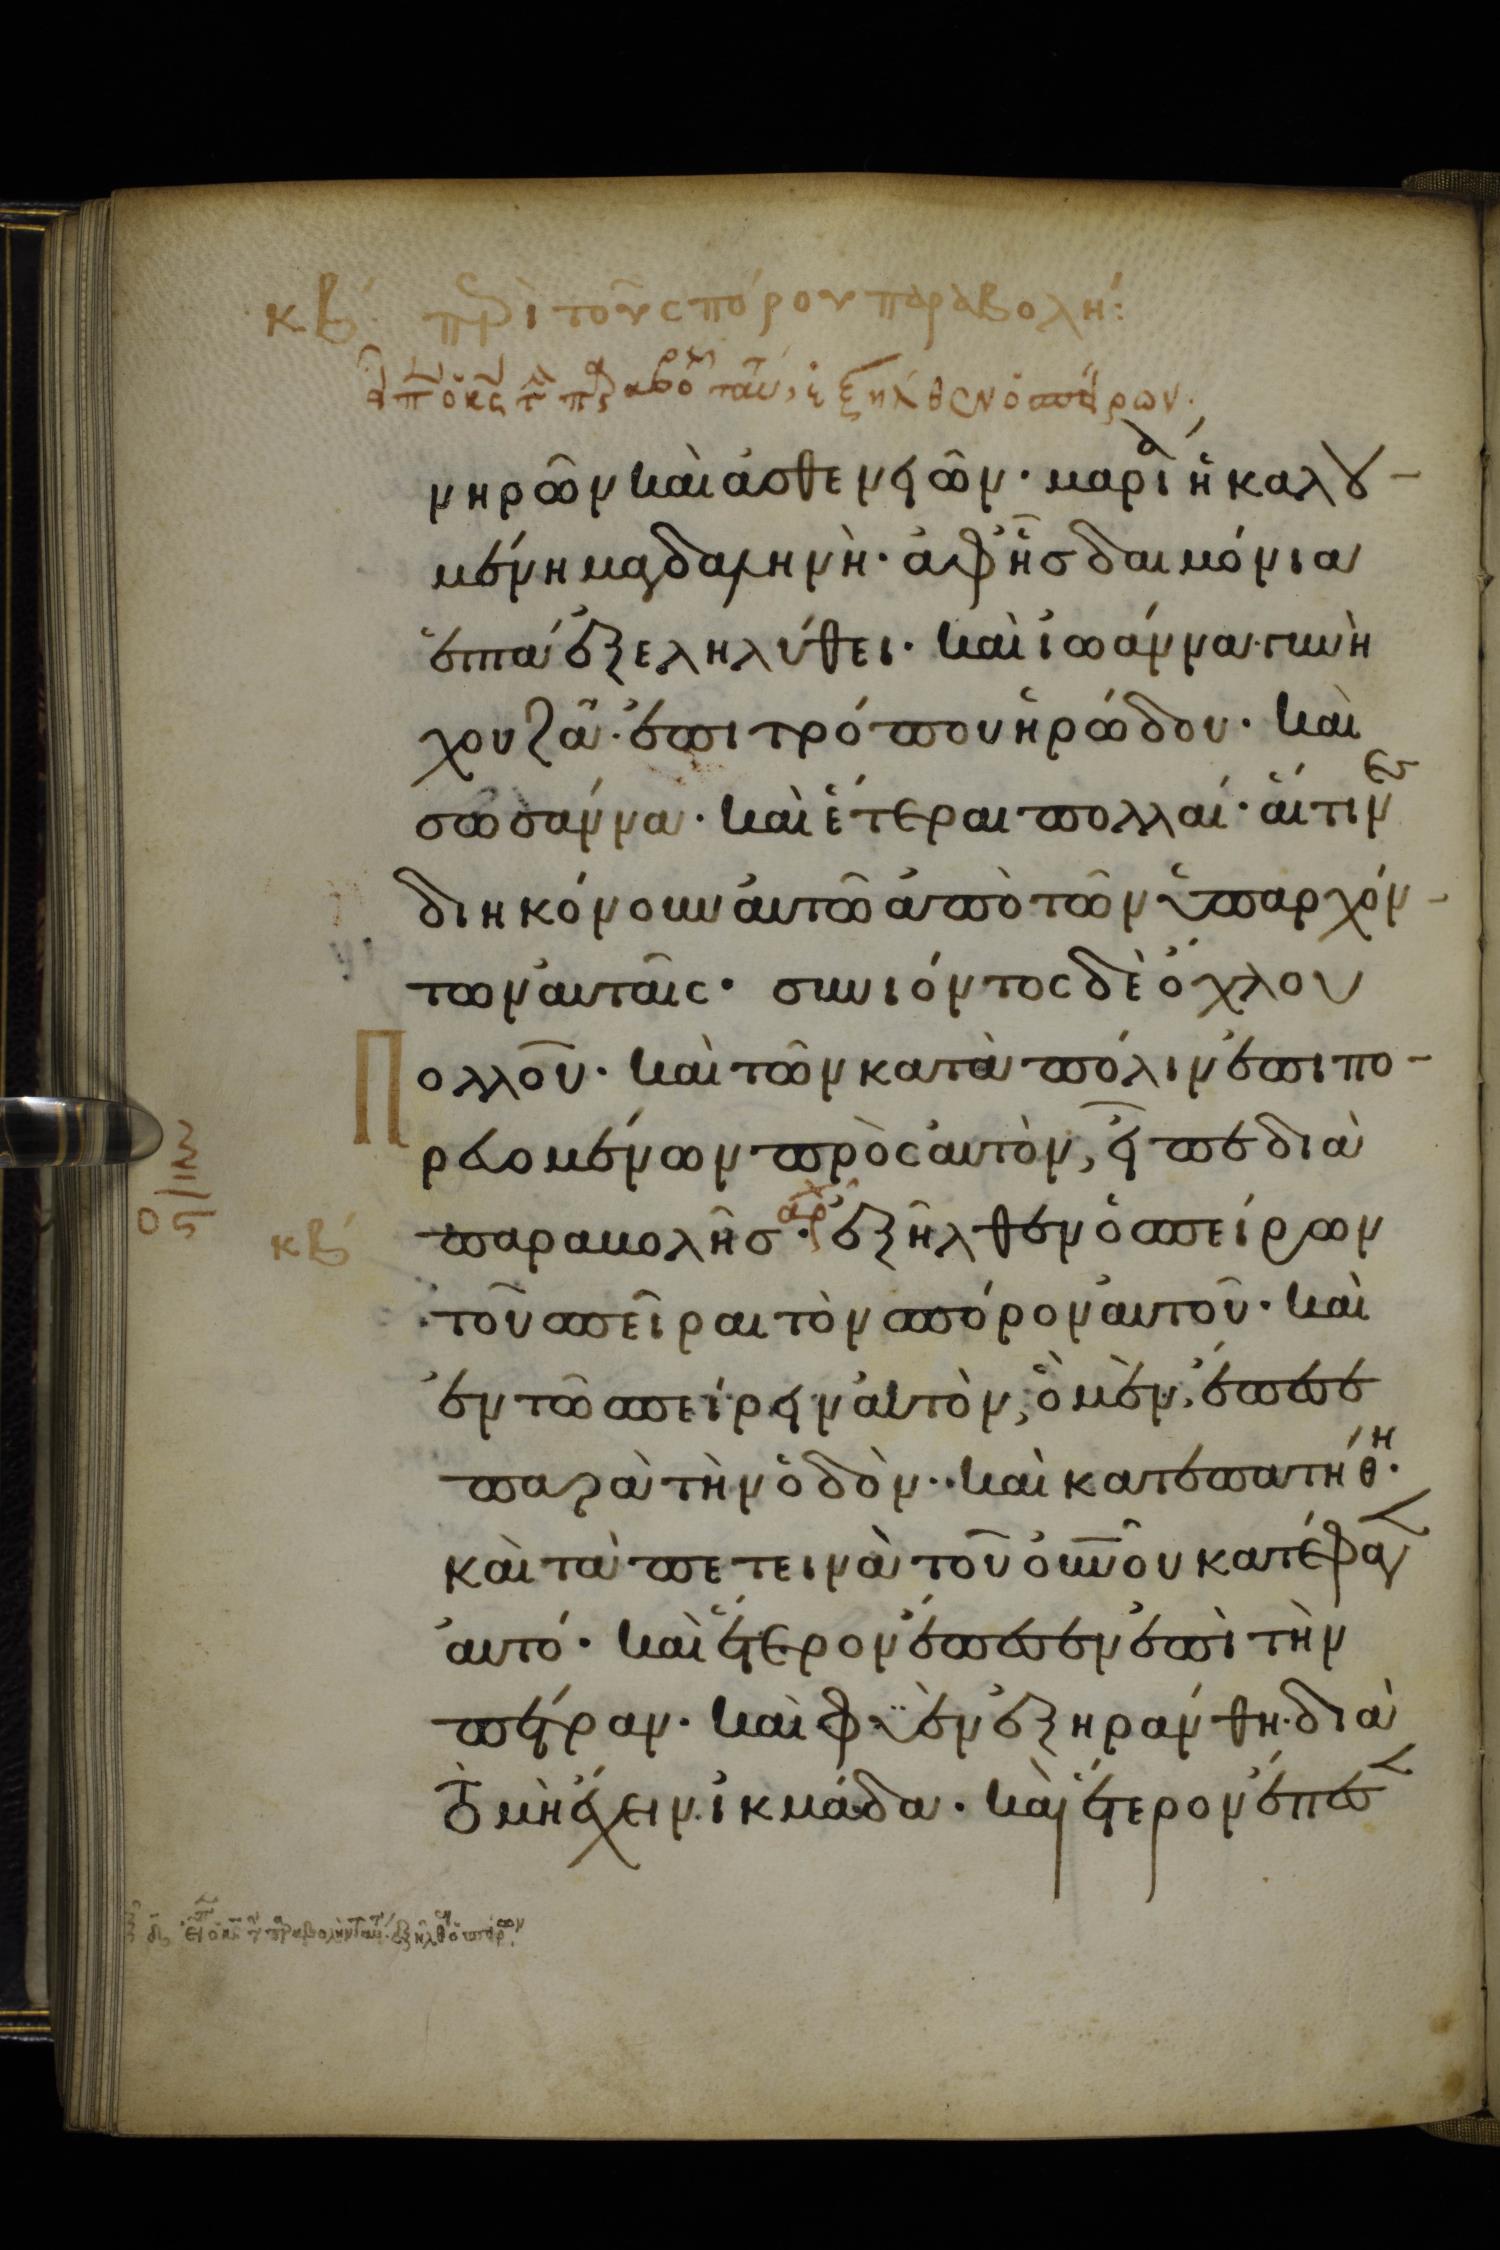 κβ΄ περὶ τοῦ σπόρου παραβολή:
εἶπ ὁ κς τ παραβο ταυ, ἐξηλθεν ὁ σπείρων.
νηρῶν καὶ ἀσθενειῶν · μαρία ἡ καλου-
μένη μαγδαληνὴ · ἀφ ἧς δαιμόνια
ἑπτὰ ἐξεληλύθει · καὶ ἰωάννα γυνὴ
χουζᾶ · ἐπιτρόπου ἡρώδου · καὶ
σωσάννα · καὶ ἕτεραι πολλαί · αἵτινες
διηκόνουν αὐτῶ ἀπὸ τῶν ὑπαρχόν-
των αὐταῖς · συνιόντος δὲ ὄχλου
Πολλοῦ · καὶ τῶν κατὰ πόλιν ἐπιπο-
ρευομένων πρὸς αὐτὸν, εἶπε διὰ
κβ΄ παραβολῆς · ἀρχ ἐξῆλθεν ὁ σπείρων
τοῦ σπεῖραι τὸν σπόρον αὐτοῦ · καὶ
ἐν τῶ σπείρειν αὐτὸν, ὃ μὲν, ἔπεσε
παρὰ τὴν ὁδὸν · καὶ κατεπατήθη ·
καὶ τὰ πετεινὰ τοῦ οὐνοῦ κατέφαγεν
αὐτό · καὶ ἕτερον ἔπεσεν ἐπὶ τὴν
πέτραν · καὶ φϋὲν ἐξηράνθη · διὰ
τὸ μὴ ἔχειν ἰκμάδα · καὶ ἕτερον ἔπεσεν
εἶπ ὁ κς τ παραβολὴν ταυτ · ἐξῆλθ ὁ σπείρων